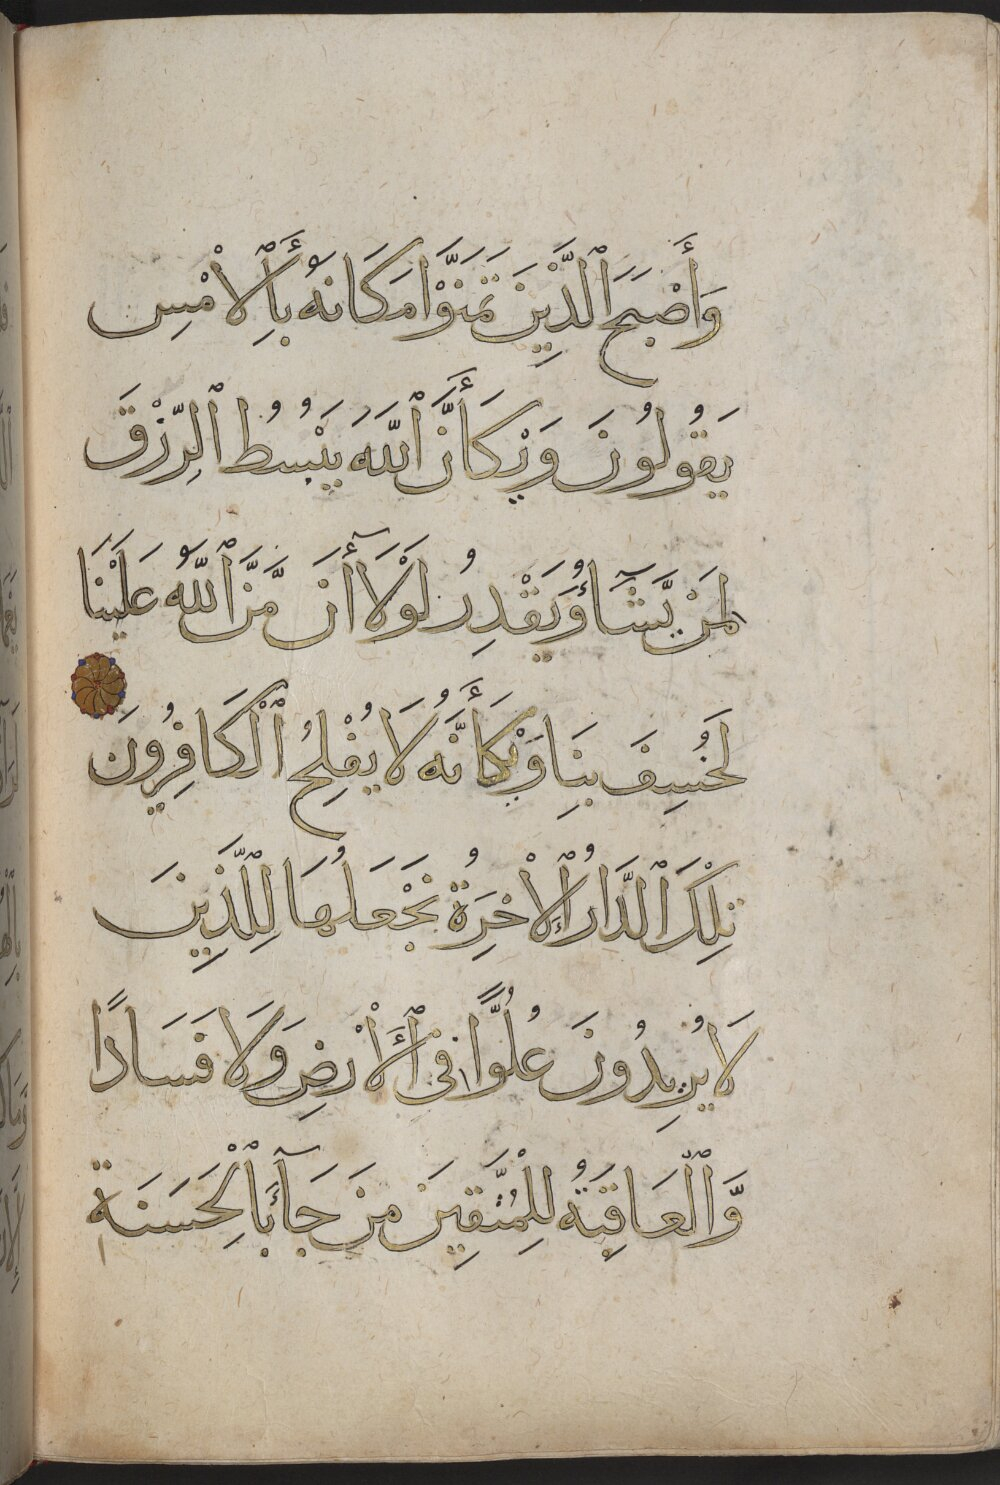 وَأَصْبَحَ ٱلَّذِينَ تَمَنَّوْا مَكَانَهُ بِٱلْأَمْسِ
يَقُولُونَ وَيْكَأَنَّ ٱللَّهَ يَبْسُطُ ٱلرِّزْقَ
لِمَن يَّشَآءُ وَيَقْدِرُ لَوْلَآ أَن مَّنَّ ٱللَّهُ عَلَيْنَا
لَخُسِفَ بِنَا وَيْكَأَنَّهُ لَا يُفْلِحُ ٱلْكَافِرُونَ
تِلْكَ ٱلدَّارُ ٱلْأٓخِرَةُ نَجْعَلُهَا لِلَّذِينَ
لَا يُرِيدُونَ عُلُوًّا فِى ٱلْأَرْضِ وَلَا فَسَادًا
وَّٱلْعَاقِبَةُ لِلْمُتَّقِينَ مَن جَآءَ بِٱلْحَسَنَةِ